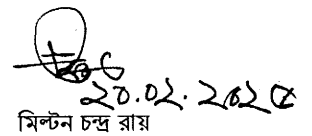 ২০.০২.২০২৫
মিল্টন চন্দ্র রায়